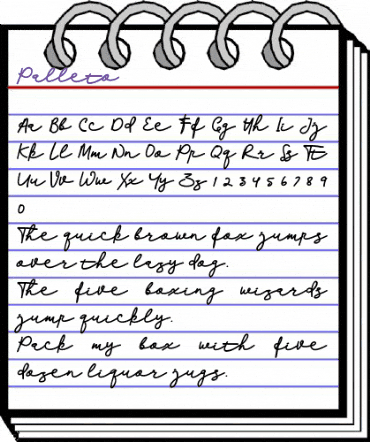 Palleta
Aa Bb Cc Dd Ee Ff Gg Hh Ii Jj
Kk Ll Mm Nn Oo Pp Qq Rr Ss Tt
Uu Vv Ww Xx Yy Zz 1 2 3 4 5 6 7 8 9
0
The quick brown fox jumps
over the lazy dog.
The five boxing wizards
jump quickly.
Pack my box with five
dozen liquor jugs.